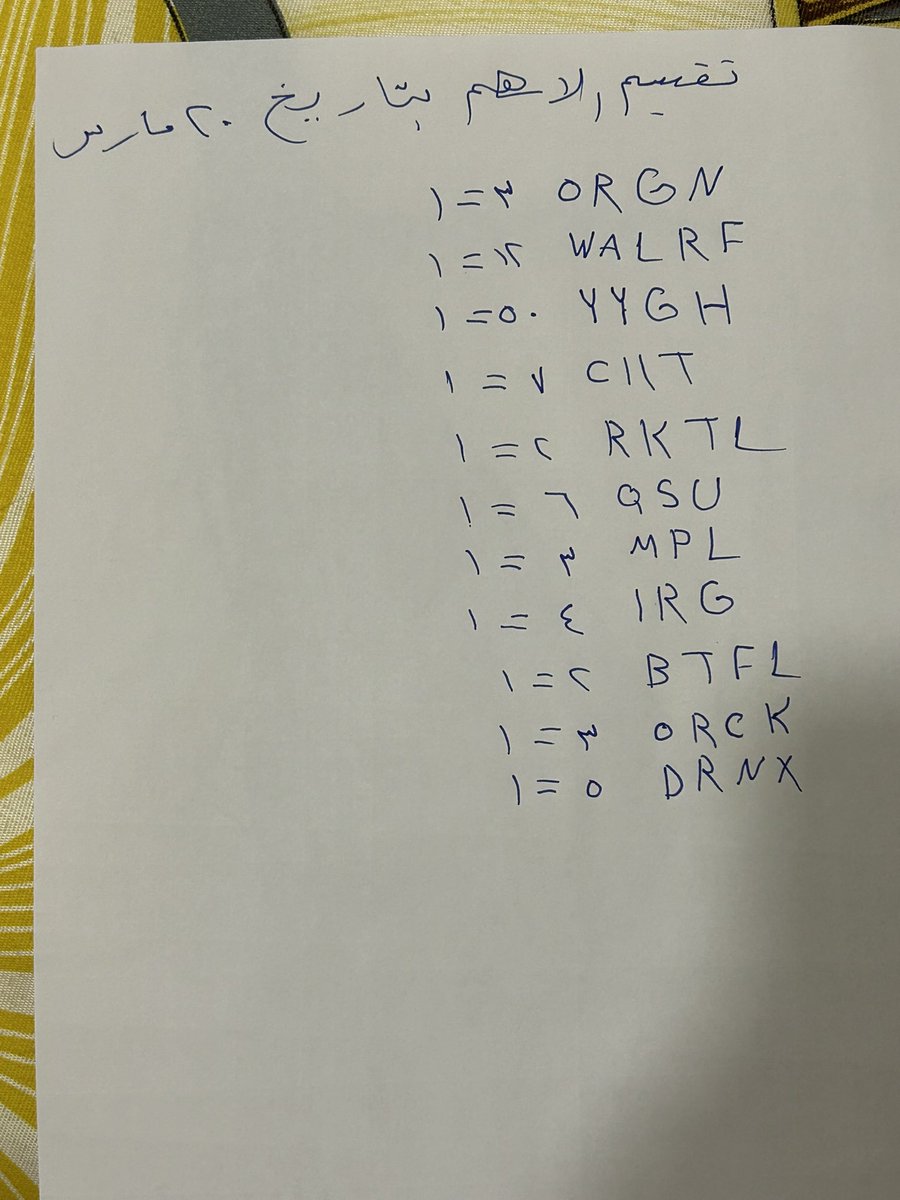 تقسيم الاسهم بتاريخ ٢٠ مارس
ORGN ٣ = ١
WALRF ١٢ = ١
YYGH ٥٠ = ١
CIIT ٧ = ١
RKTL ٢ = ١
QSU ٦ = ١
MPL ٣ = ١
IRG ٤ = ١
BTFL ٢ = ١
ORCK ٣ = ١
DRNX ٥ = ١